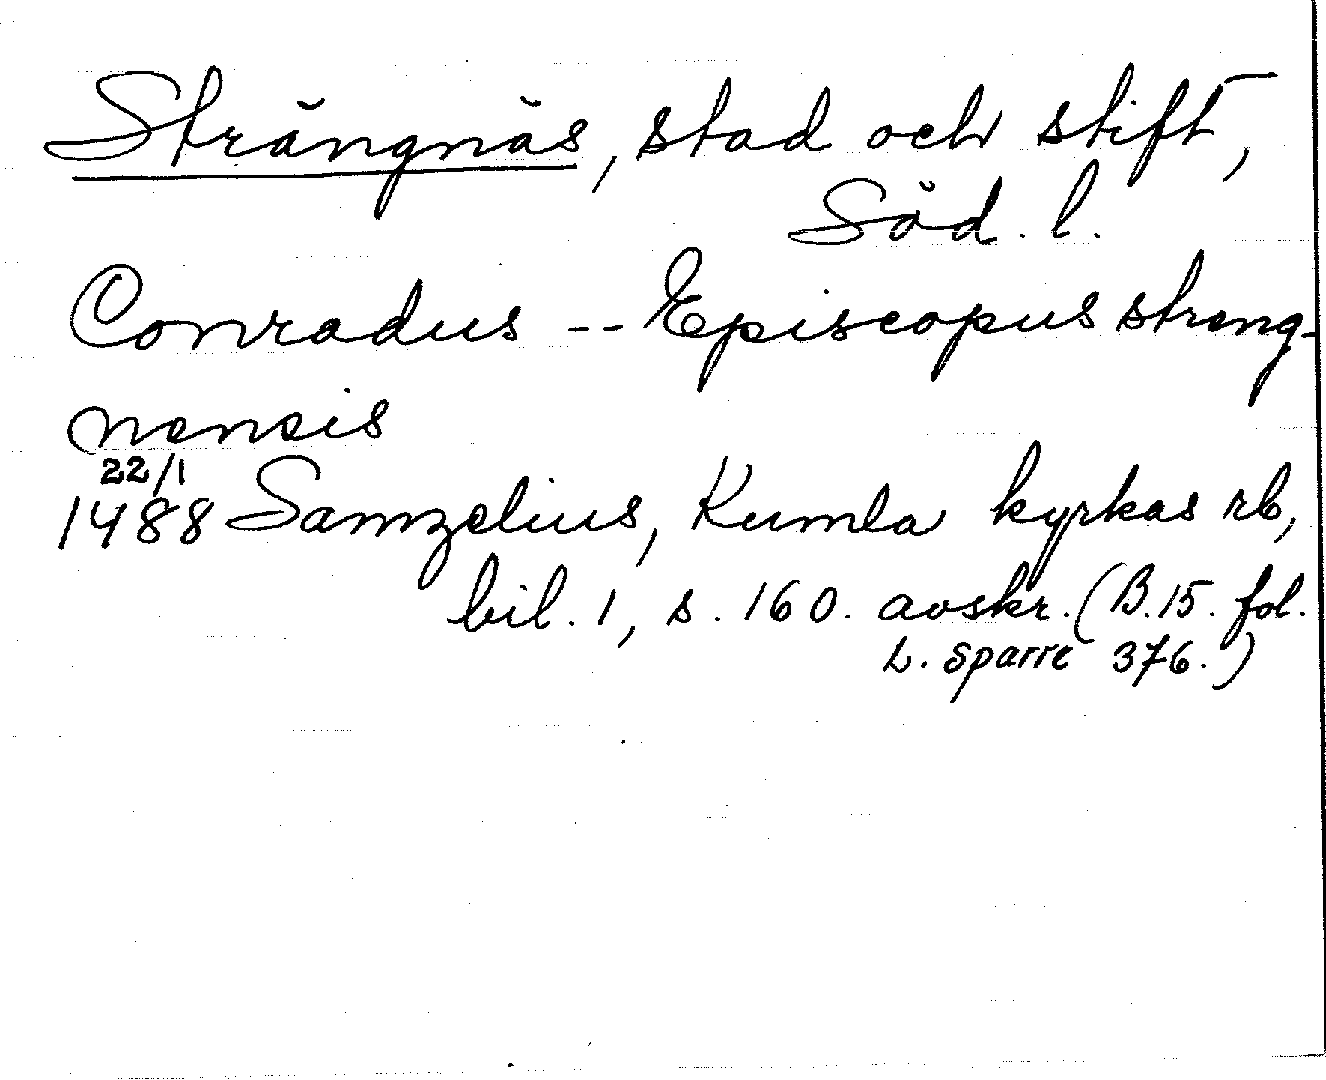 Strängnäs, stad och stift,
Söd. l.
Conradus -- Episcopus streng-
nensis
22/1
1488 Samzelius, Kumla kyrkas rb,
bil. 1, s. 160. avskr. (B.15. fol.
L. Sparre 376.)